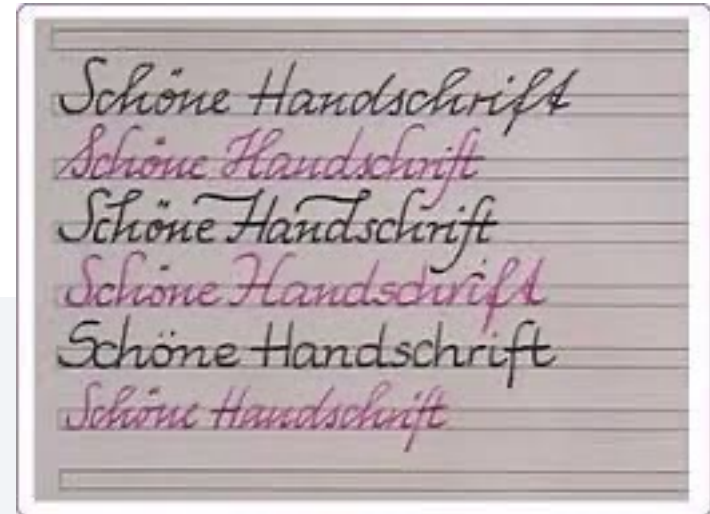 Schöne Handschrift
Schöne Handschrift
Schöne Handschrift
Schöne Handschrift
Schöne Handschrift
Schöne Handschrift